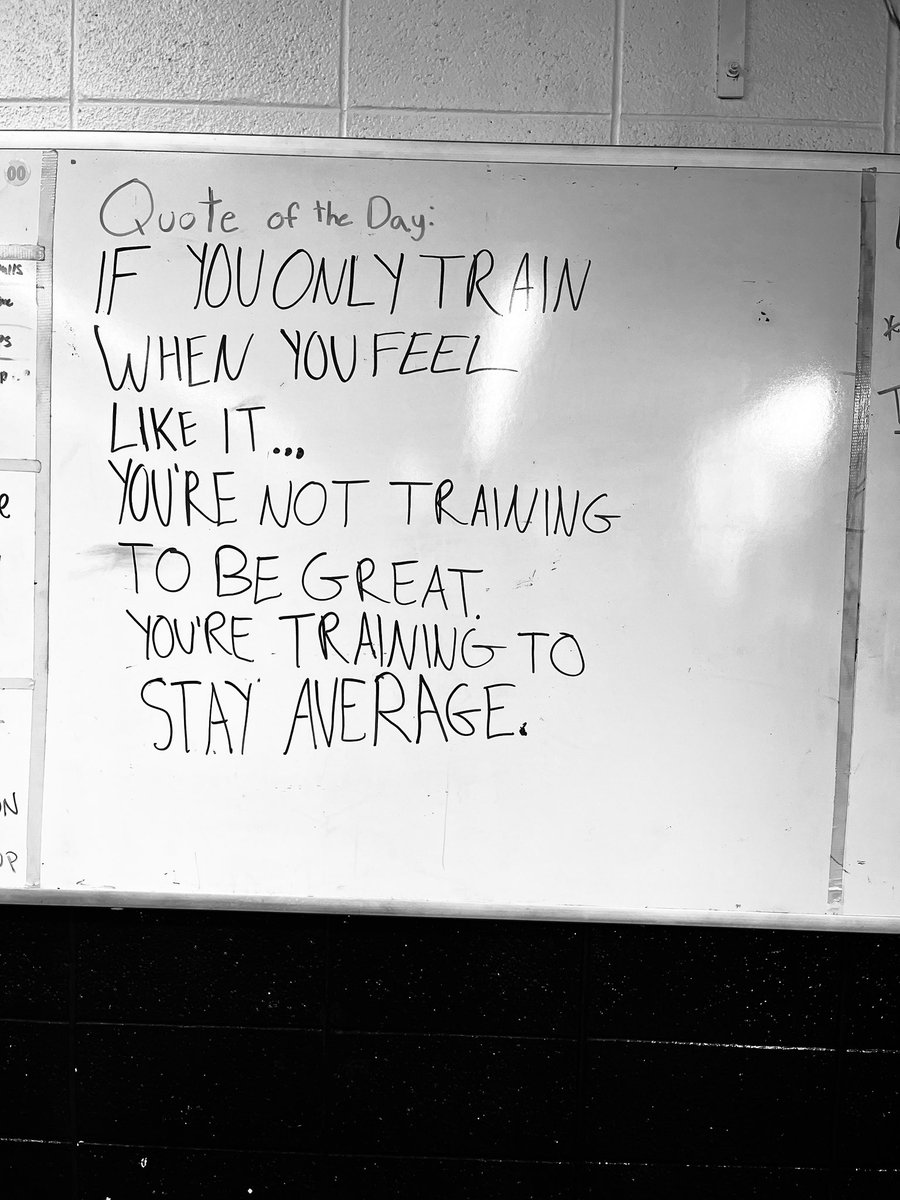 00
Quote of the Day:
IF YOU ONLY TRAIN
WHEN YOU FEEL
LIKE IT...
YOU'RE NOT TRAINING
TO BE GREAT.
YOU'RE TRAINING TO
STAY AVERAGE.